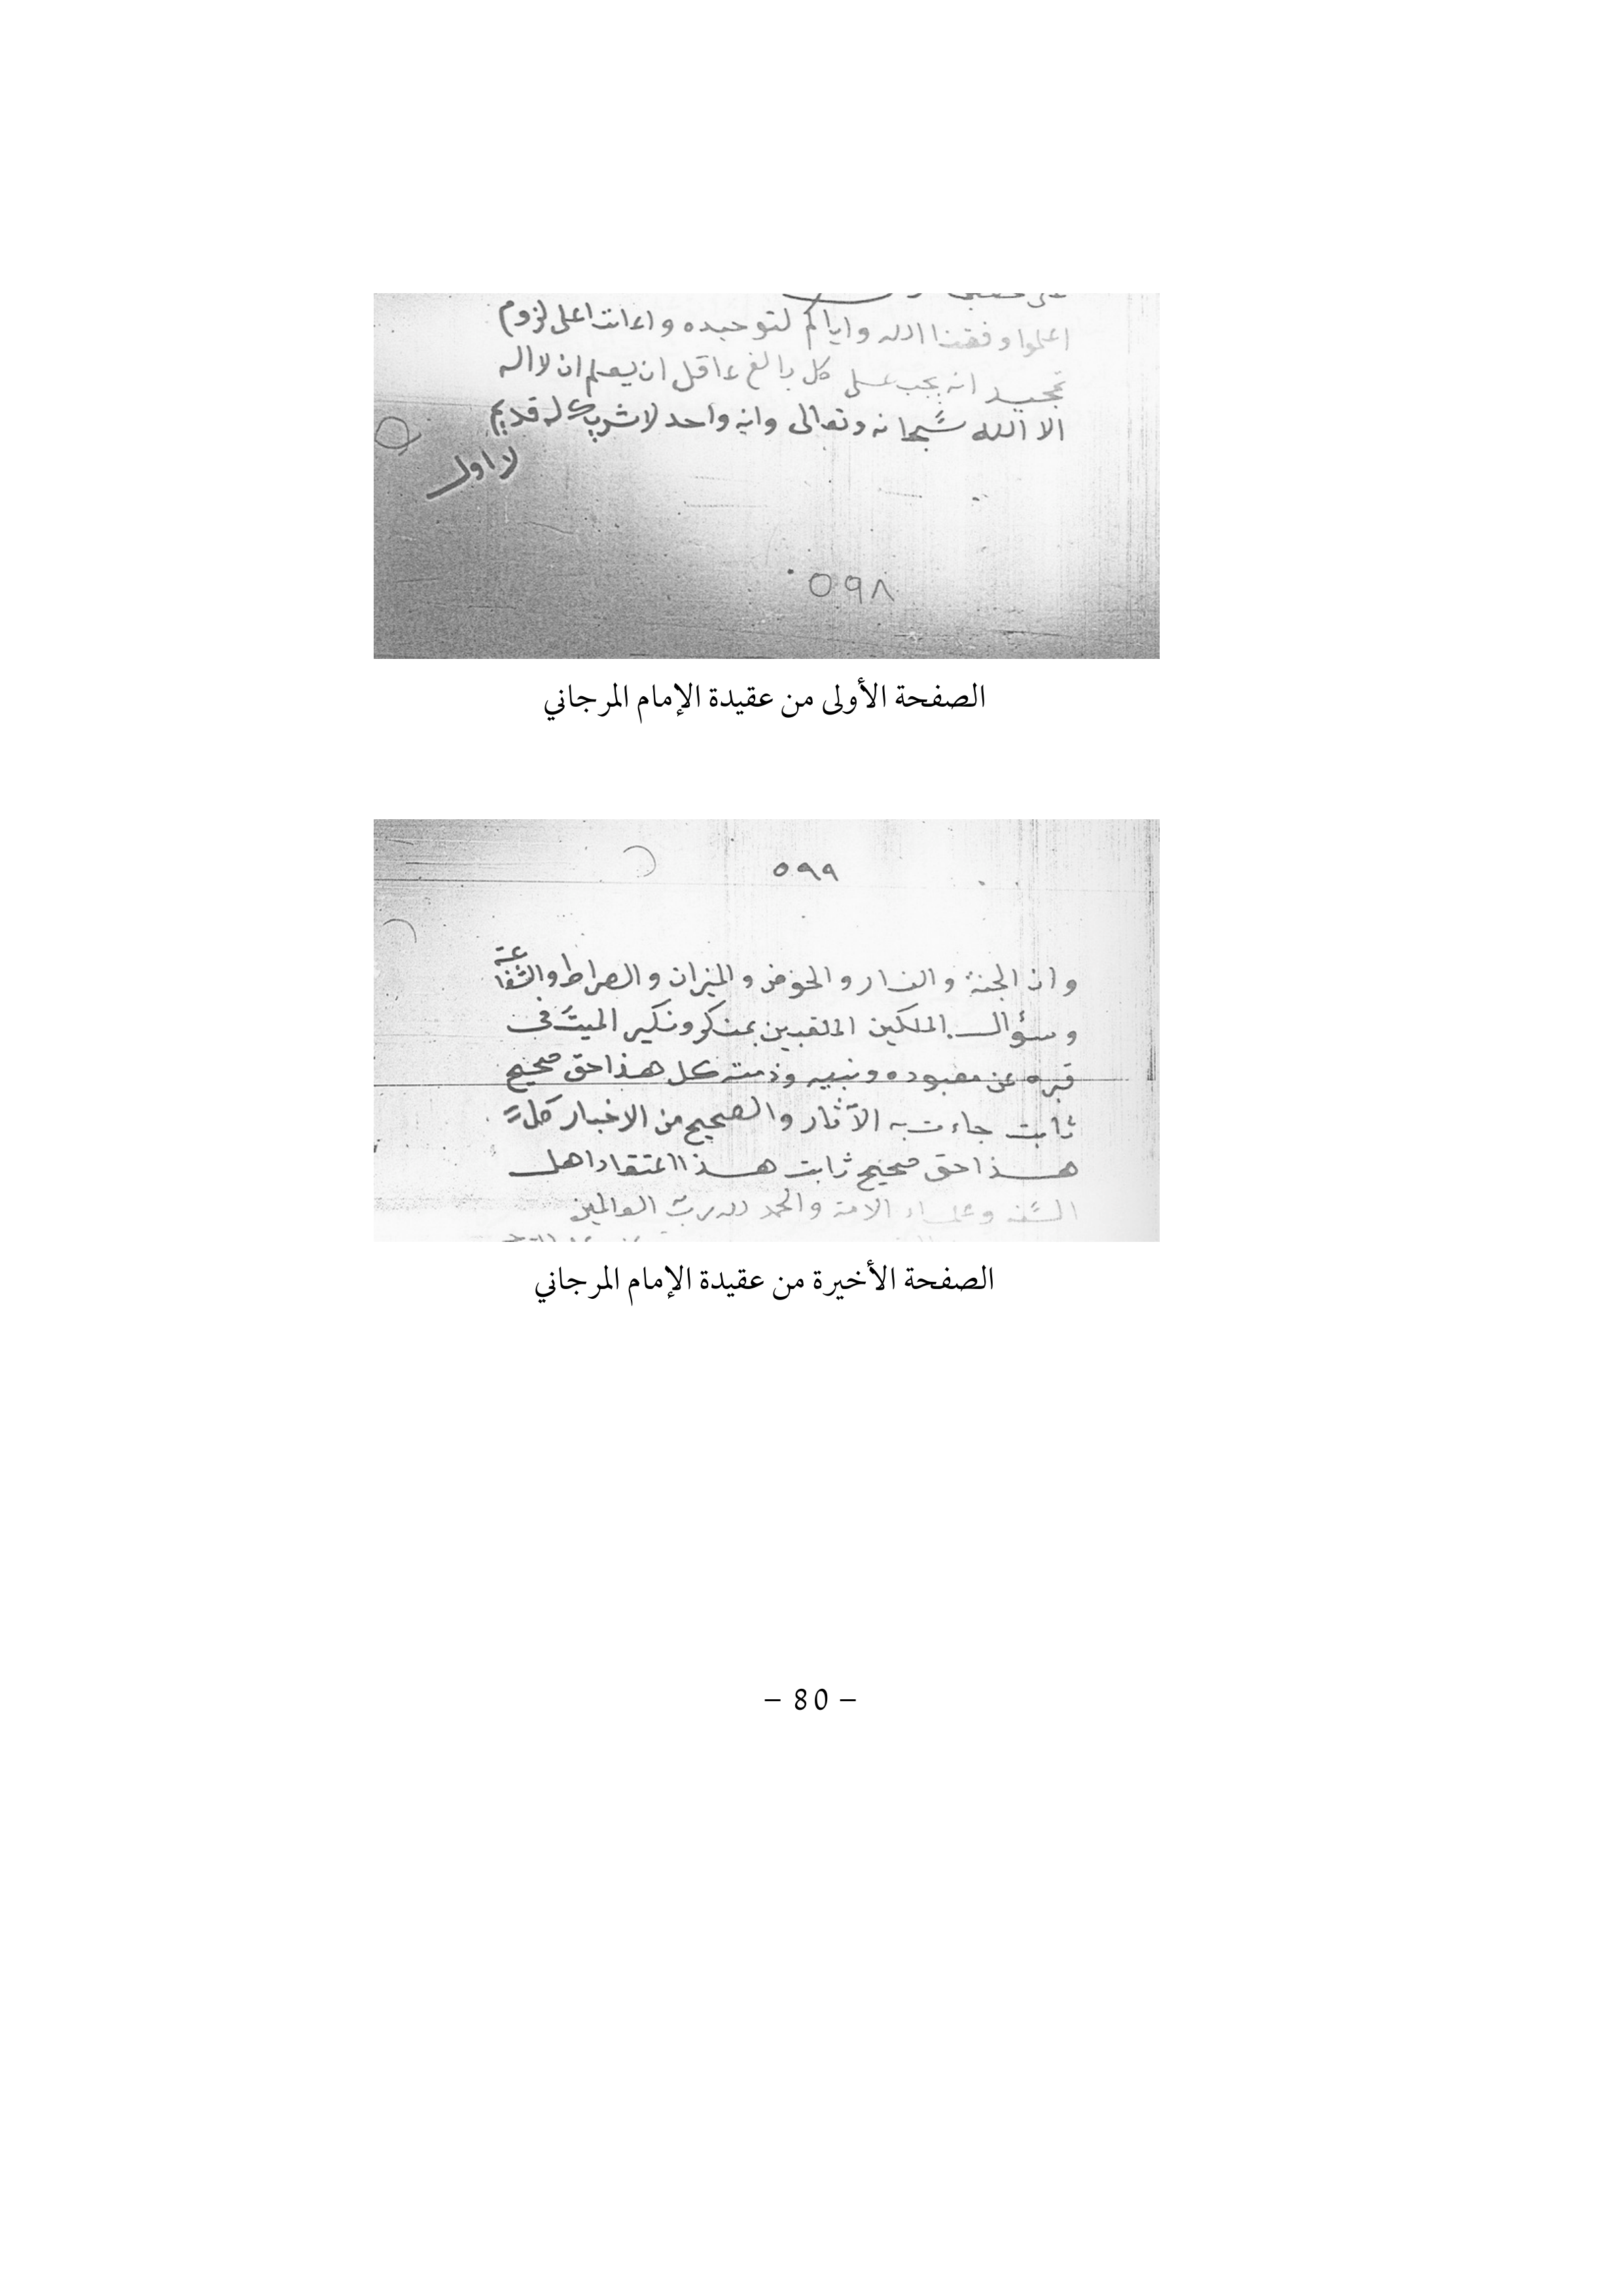 اعلموا وفقنا الله واياكم لتوحيده واعاننا على لزوم
تمجيده انه يجب على كل بالغ عاقل ان يعلم ان لا اله
الا الله سبحانه وتعالى وانه واحد لا شريك له قديم
لا اول
٥٩٨
الصفحة الأولى من عقيدة الإمام المرجاني
٥٩٩
وان الجنة والنار والحوض والميزان والصراط والشفاعة
وسؤال الملكين الملقبين بمنكر ونكير الميت في
قبره عن معبوده ونبيه وذمته كل هذا حق صحيح
ثابت جاءت به الآثار والصحيح من الاخبار كل
هذا حق صحيح ثابت هذا اعتقاد اهل
السنه وعلماء الامة والحمد لله رب العالمين
الصفحة الأخيرة من عقيدة الإمام المرجاني
– 80 –